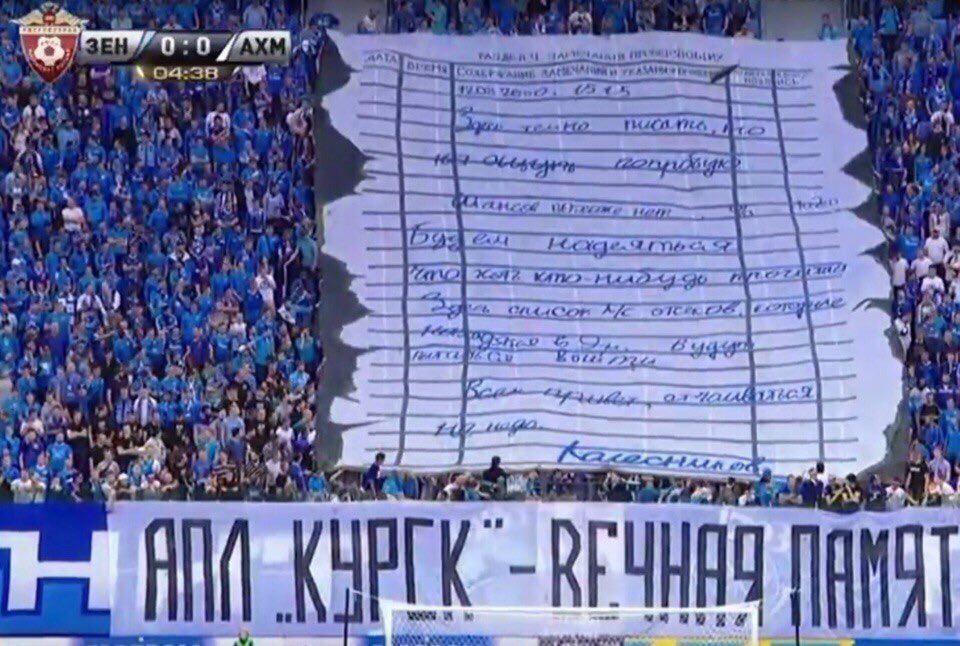 ЗЕН 0:0 АХМ
04:38
РАЗДЕЛ ЗАМЕЧАНИЯ ПРОВЕРЯЮЩИХ
ДАТА ВРЕМЯ СОДЕРЖАНИЕ ЗАМЕЧАНИЙ И УКАЗАНИЙ
15
Здесь темно писать, но
на ощупь попробую
Шансов похоже нет
Будем надеяться
что хоть кто-нибудь прочитает
Здесь список л/с отсеков, которые
находятся в 9м. Будут
пытаться выйти
Всем привет, отчаиваться
не надо.
Колесников
Н АПЛ „КУРСК“ - ВЕЧНАЯ ПАМЯТ